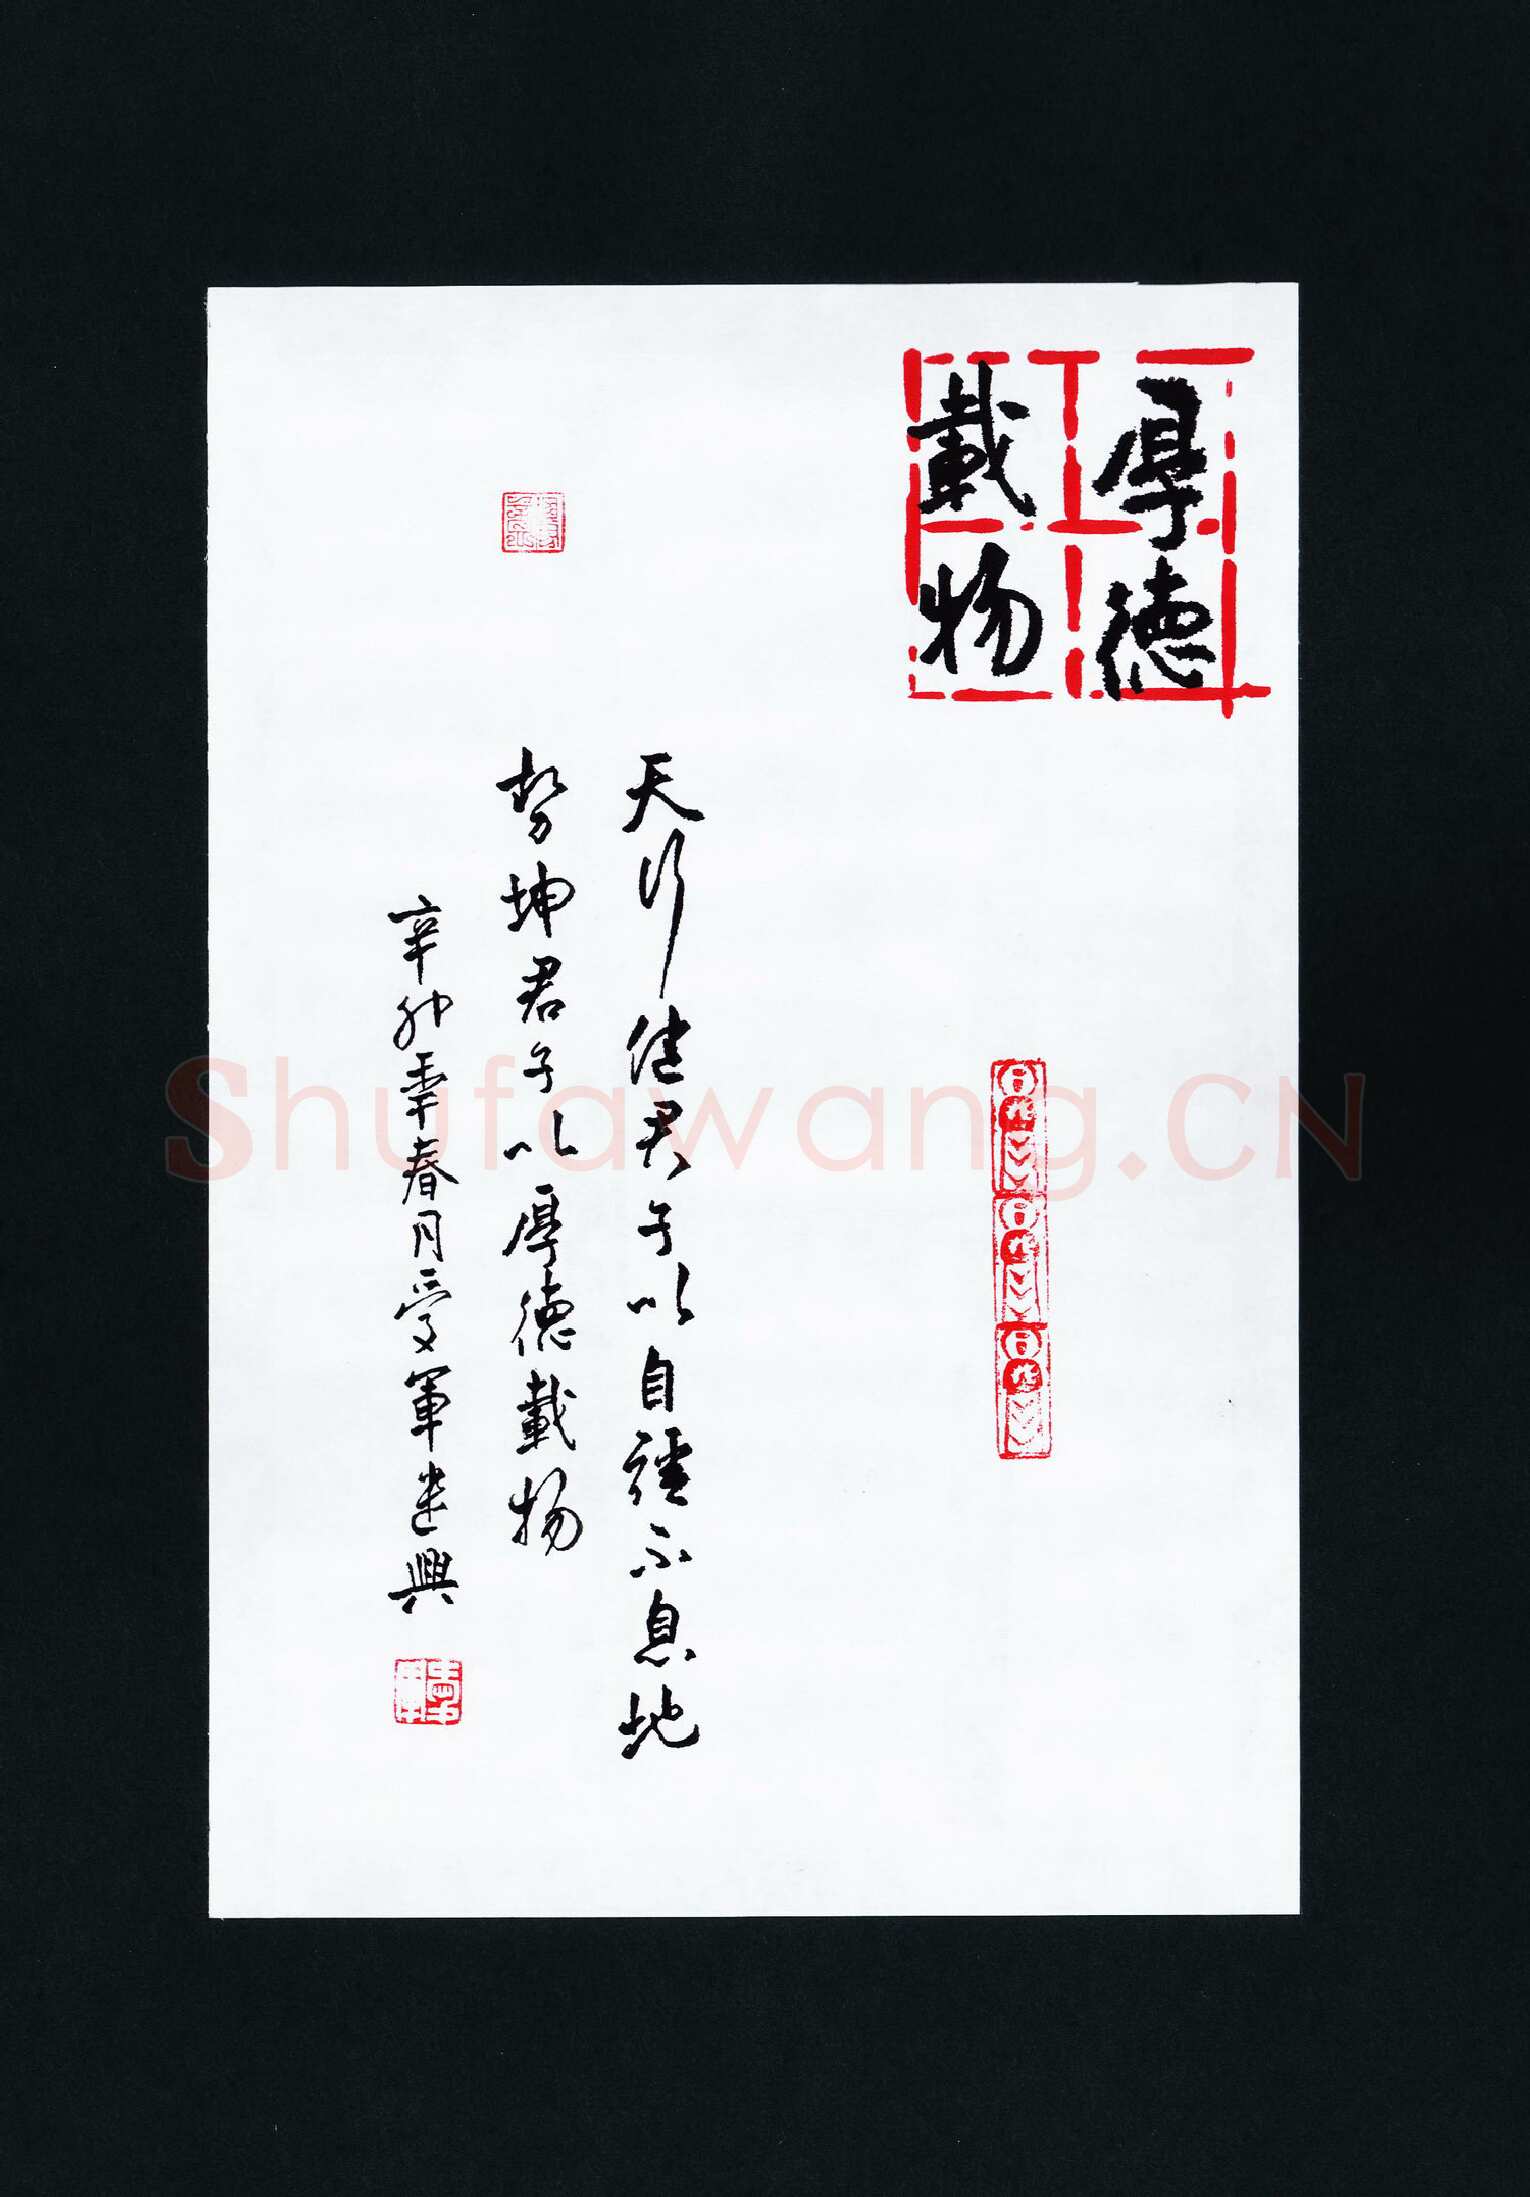 厚德
載物
天行健君子以自强不息地
势坤君子以厚德載物
辛卯季春月受軍建興
Shufawang.CN